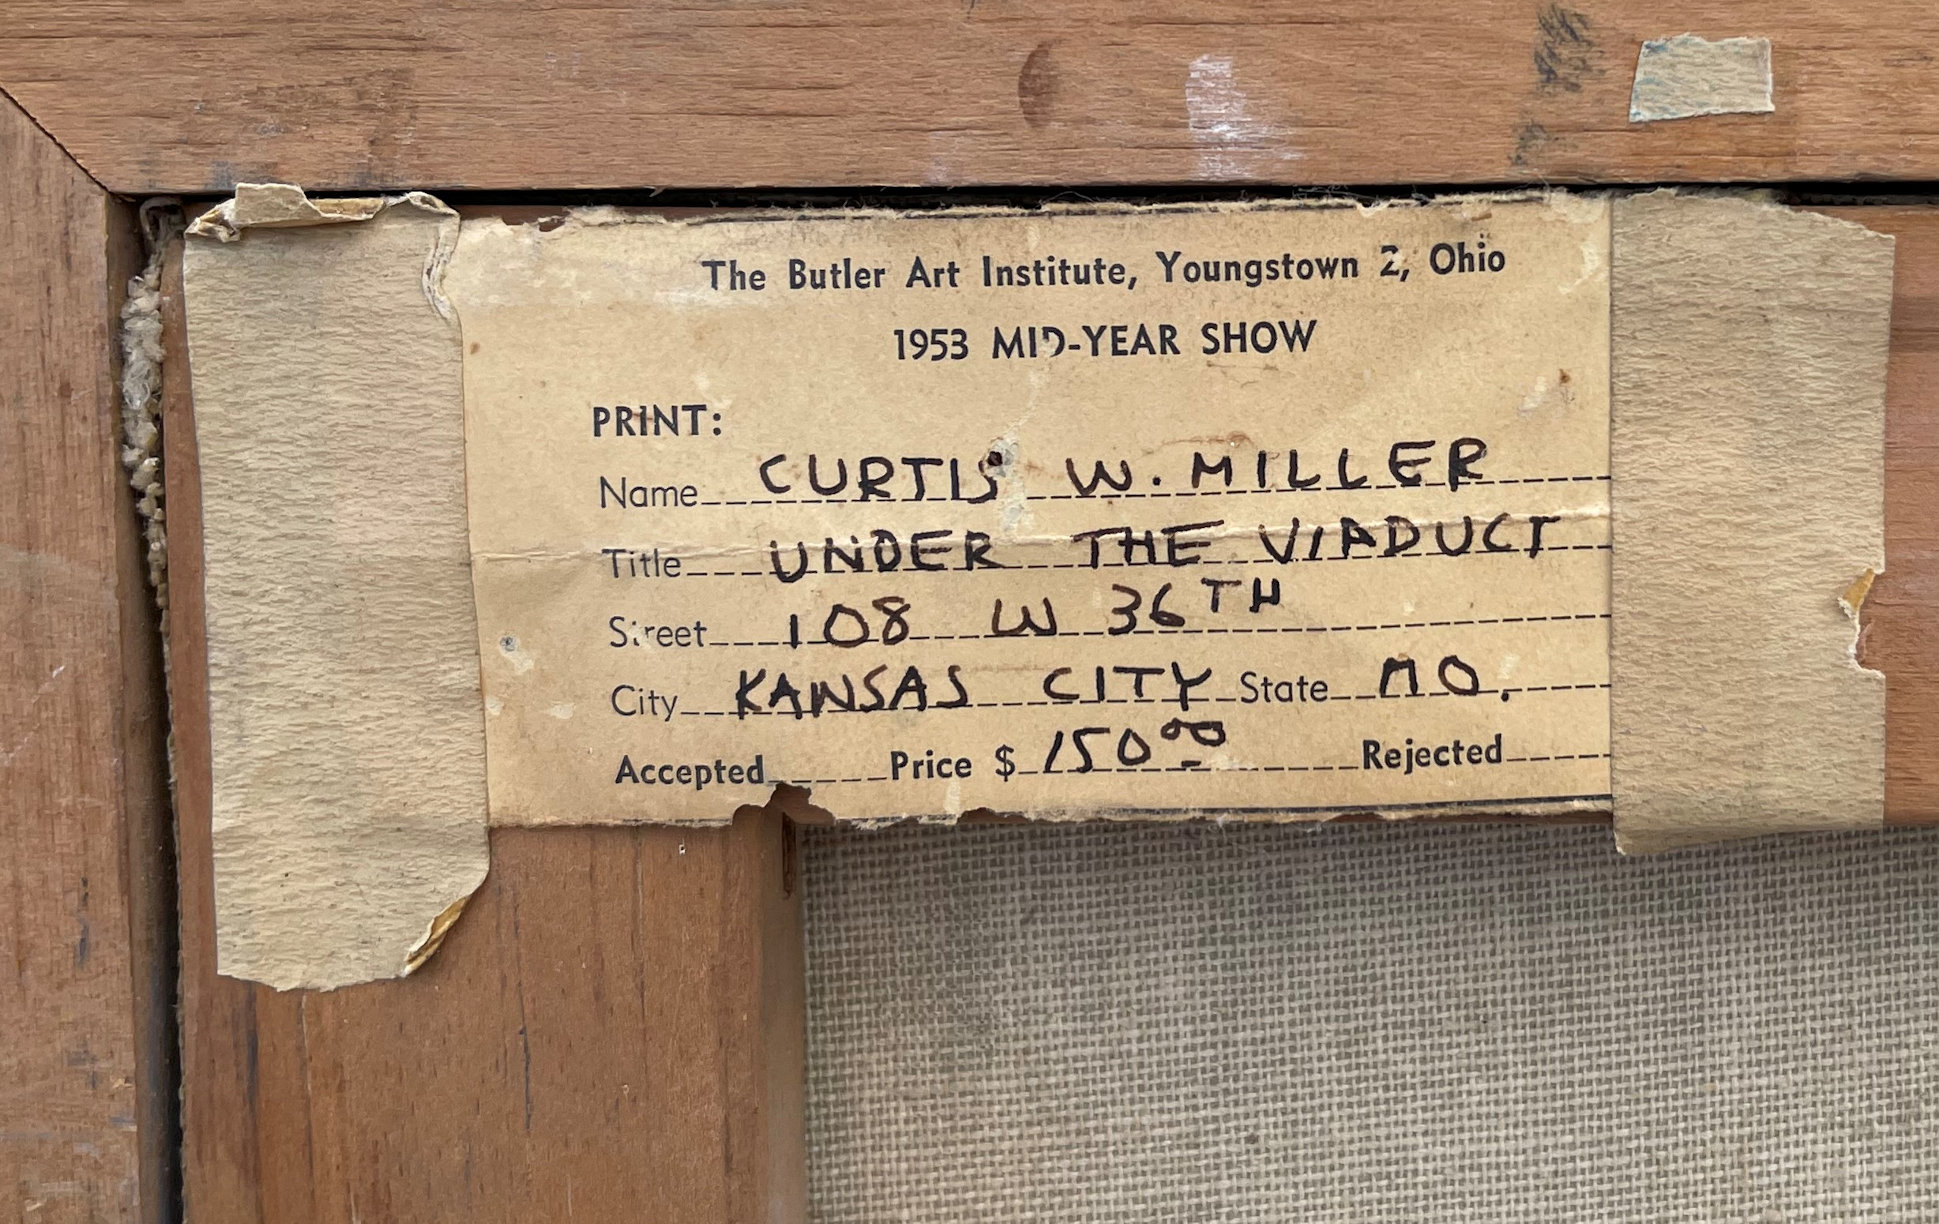 The Butler Art Institute, Youngstown 2, Ohio
1953 MID-YEAR SHOW
PRINT:
Name CURTIS W. MILLER
Title UNDER THE VIADUCT
Street 108 W 36TH
City KANSAS CITY State MO.
Accepted Price $ 150.00 Rejected